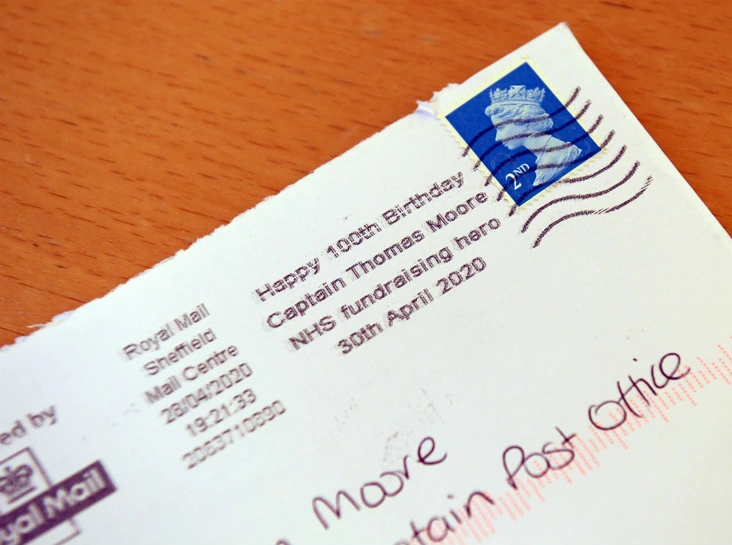 2ND
Happy 100th Birthday
Captain Thomas Moore
NHS fundraising hero
30th April 2020
Royal Mail
Sheffield
Mail Centre
28/04/2020
19:21:33
2063710890
ed by
yal Mail
Moore
tain Post Office